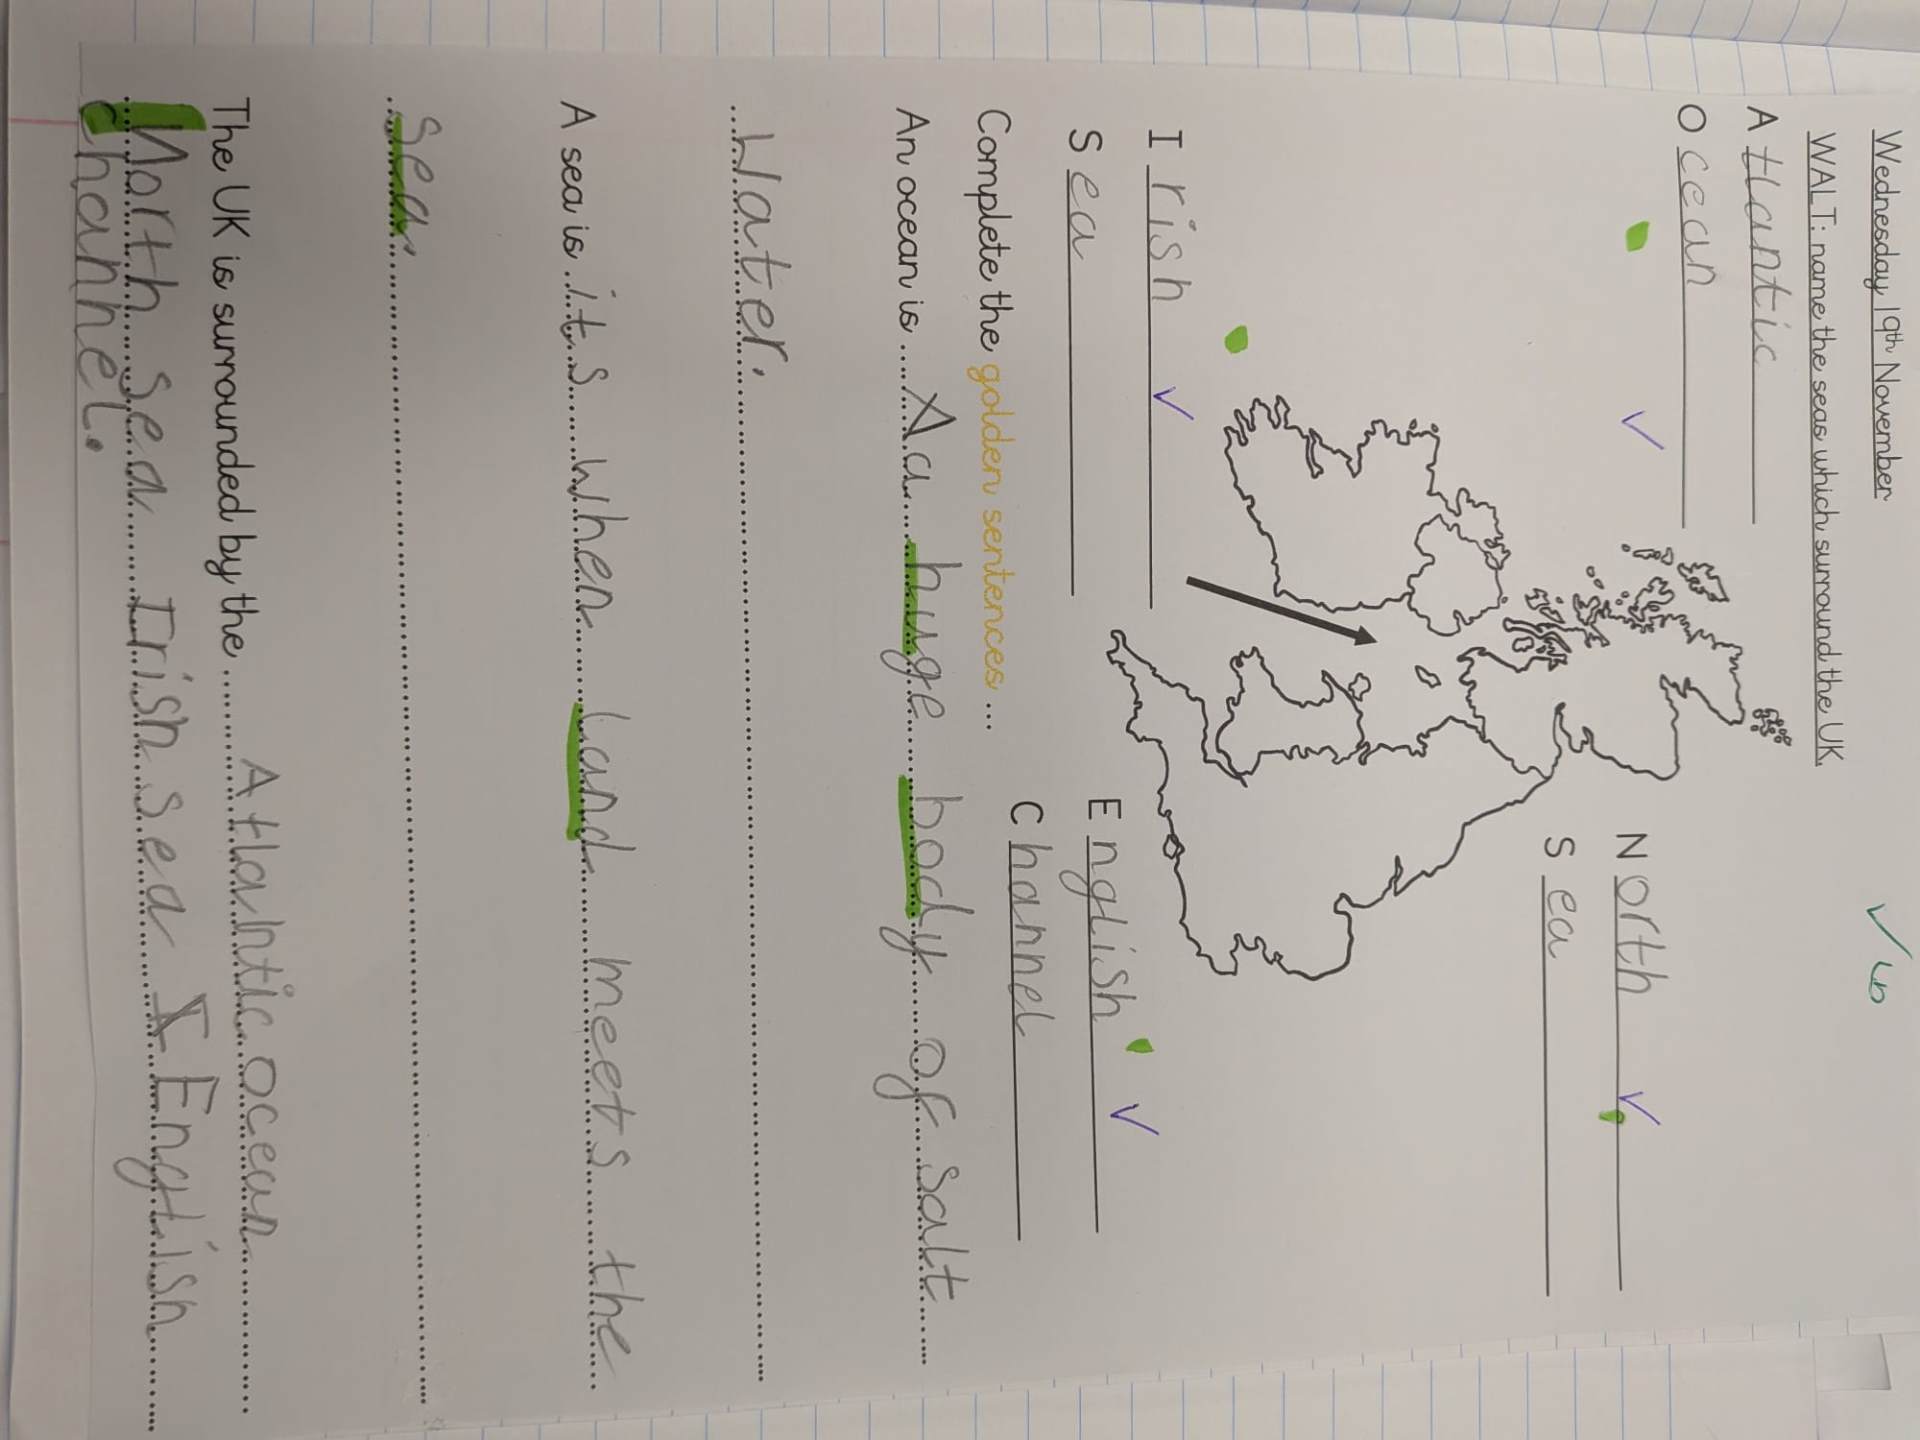 Wednesday 19th November
WALT: name the seas which surround the UK.
Atlantic
Ocean
North
Sea
Irish
Sea
English
Channel
Complete the golden sentences ...
An ocean is A a huge body of salt
Water.
A sea is its when Land meets the
Sea.
The UK is surrounded by the Atlantic ocean
North Sea Irish sea I English
Channel.